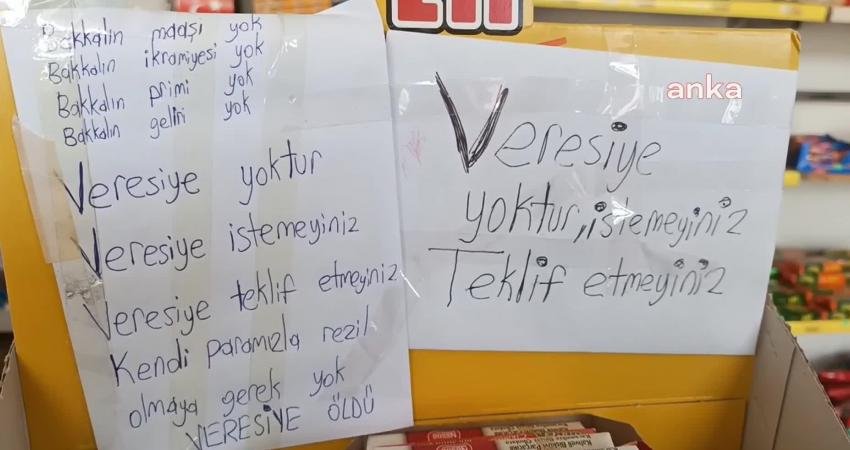 Bakkalın maaşı yok
Bakkalın ikramiyesi yok
Bakkalın primi yok
Bakkalın geliri yok
Veresiye yoktur
Veresiye istemeyiniz
Veresiye teklif etmeyiniz
Kendi paramızla rezil
olmaya gerek yok
VERESİYE ÖLDÜ
anka
Veresiye
yoktur, istemeyiniz
Teklif etmeyiniz